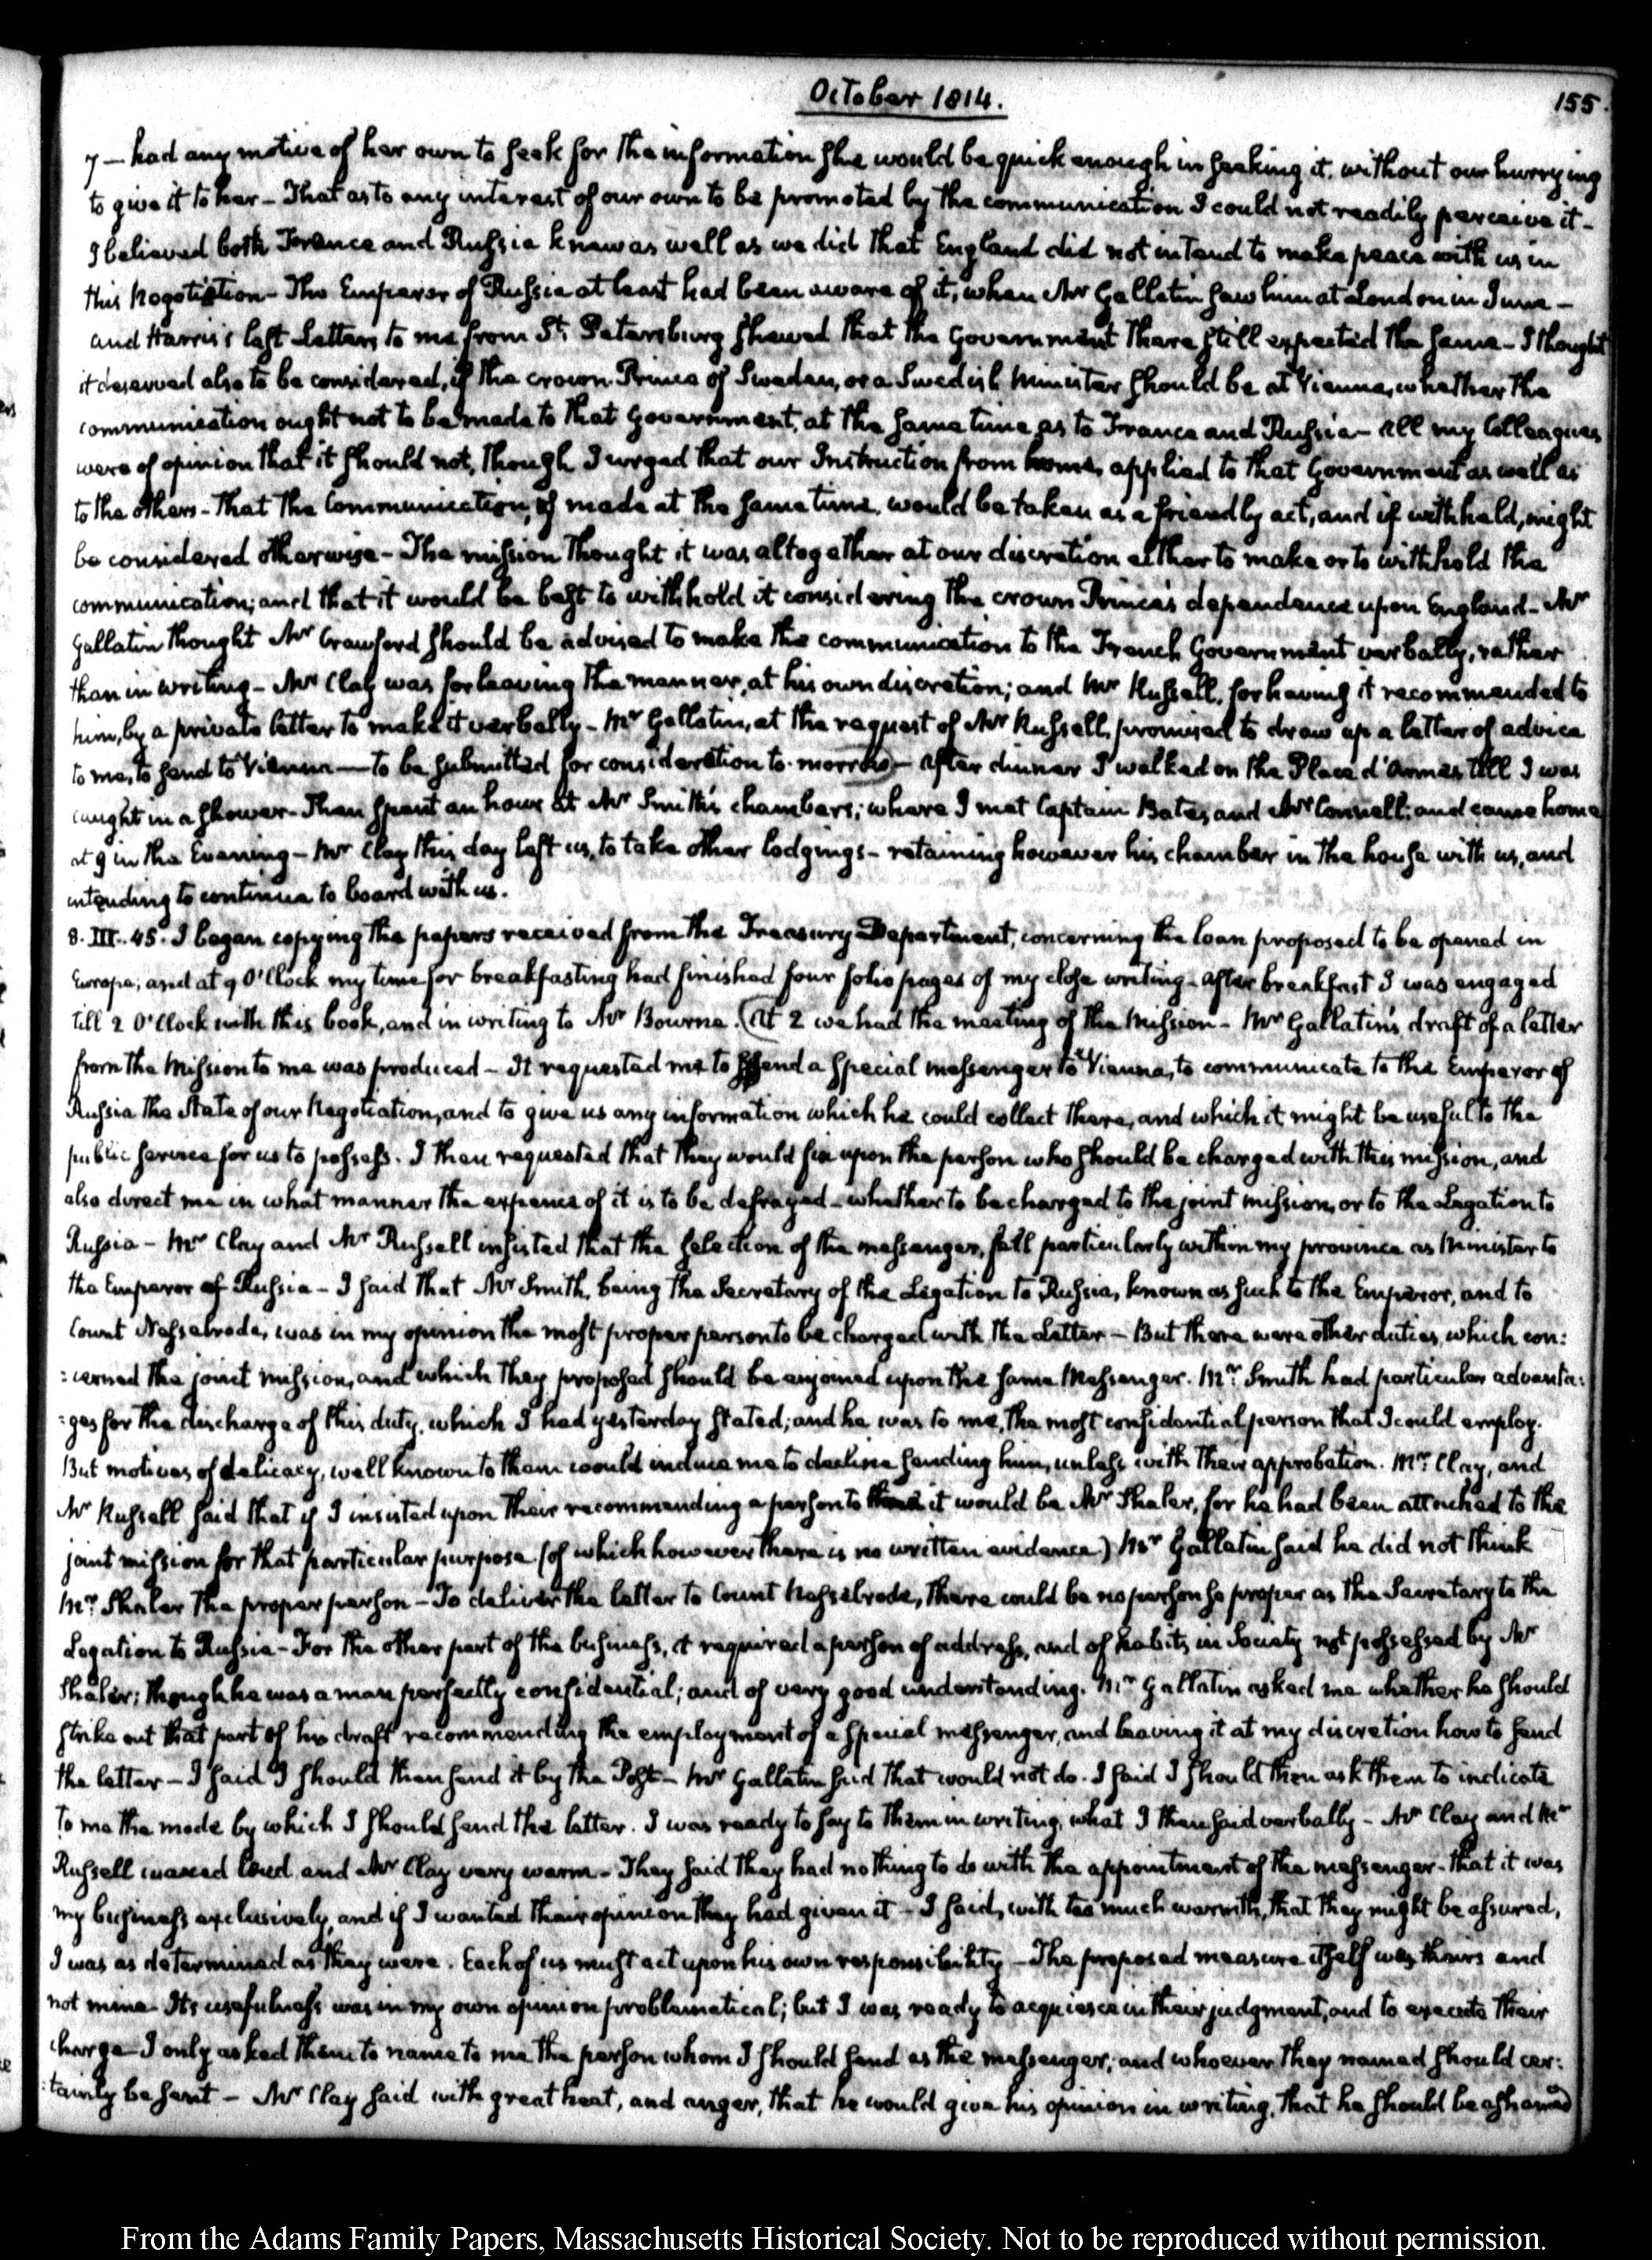 October 1814.
155.
7 — had any motive of her own to seek for the information she would be quick enough in seeking it, without our hurrying
to give it to her - That as to any interest of our own to be promoted by the communication I could not readily perceive it -
I believed both France and Russia knew as well as we did that England did not intend to make peace with us in
this Negotiation - The Emperor of Russia at least had been aware of it, when Mr Gallatin saw him at London in June -
and Harris's last Letters to me from St. Petersburg shewed that the Government there still expected the same - I thought
it deserved also to be considered, if the crown Prince of Sweden, or a Swedish Minister should be at Vienna, whether the
communication ought not to be made to that Government, at the same time as to France and Russia - All my Colleagues
were of opinion that it should not, though I urged that our Instruction from home, applied to that Government as well as
to the others - That the Communication, if made at the same time, would be taken as a friendly act, and if withheld, might
be considered otherwise - The mission thought it was altogether at our discretion either to make or to withhold the
communication; and that it would be best to withhold it considering the crown Prince's dependence upon England - Mr
Gallatin thought Mr Crawford should be advised to make the communication to the French Government verbally, rather
than in writing - Mr Clay was for leaving the manner, at his own discretion; and Mr Russell, for having it recommended to
him, by a private letter to make it verbally - Mr Gallatin, at the request of Mr Russell, promised to draw up a letter of advice
to me, to send to Vienna — to be submitted for consideration to-morrow - After dinner I walked on the Place d'Armes till I was
caught in a shower - Then spent an hour at Mr Smith's chambers; where I met Captain Bates, and Mr Connell; and came home
at 9 in the Evening - Mr Clay this day left us, to take other lodgings - retaining however his chamber in the house with us, and
intending to continue to board with us.
8. III. 45. I began copying the papers received from the Treasury Department, concerning the loan proposed to be opened in
Europe; and at 9 O'Clock my time for breakfasting had finished four folio pages of my close writing - After breakfast I was engaged
till 2 O'Clock with this book, and in writing to Mr Bourne. (At 2 we had the meeting of the Mission - Mr Gallatin's draft of a letter
from the Mission to me was produced - It requested me to send a special messenger to Vienna, to communicate to the Emperor of
Russia the State of our Negotiation, and to give us any information which he could collect there, and which it might be useful to the
public service for us to possess. I then requested that they would fix upon the person who should be charged with this mission, and
also direct me in what manner the expence of it is to be defrayed - whether to be charged to the joint mission, or to the Legation to
Russia - Mr Clay and Mr Russell insisted that the selection of the messenger, fell particularly within my province as Minister to
the Emperor of Russia - I said that Mr Smith, being the Secretary of the Legation to Russia, known as such to the Emperor, and to
Count Nesselrode, was in my opinion the most proper person to be charged with the Letter - But there were other duties, which con:
:cerned the joint mission, and which they proposed should be enjoined upon the same Messenger. Mr. Smith had particular advanta:
:ges for the discharge of this duty, which I had yesterday stated; and he was to me, the most confidential person that I could employ.
But motives of delicacy, well known to them would induce me to decline sending him, unless with their approbation. Mr. Clay, and
Mr Russell said that if I insisted upon their recommending a person to it would be Mr Shaler, for he had been attached to the
joint mission for that particular purpose (of which however there is no written evidence.) Mr Gallatin said he did not think
Mr. Shaler the proper person - To deliver the letter to Count Nesselrode, there could be no person so proper as the Secretary to the
Legation to Russia - For the other part of the business, it required a person of address, and of habits in Society not possessed by Mr
Shaler; though he was a man perfectly confidential; and of very good understanding. Mr Gallatin asked me whether he should
strike out that part of his draft recommending the employment of a special messenger, and leaving it at my discretion how to send
the letter - I said I should then send it by the Post - Mr Gallatin said that would not do. I said I should then ask them to indicate
to me the mode by which I should send the letter. I was ready to say to them in writing, what I then said verbally - Mr Clay and Mr
Russell waxed loud, and Mr Clay very warm - They said they had nothing to do with the appointment of the messenger - that it was
my business exclusively, and if I wanted their opinion they had given it - I said, with too much warmth, that they might be assured,
I was as determined as they were. Each of us must act upon his own responsibility - The proposed measure itself was theirs and
not mine - Its usefulness was in my own opinion problematical; but I was ready to acquiesce in their judgment, and to execute their
charge - I only asked them to name to me the person whom I should send as the messenger; and whoever they named should cer:
:tainly be sent - Mr Clay said with great heat, and anger, that he would give his opinion in writing, that he should be ashamed
From the Adams Family Papers, Massachusetts Historical Society. Not to be reproduced without permission.